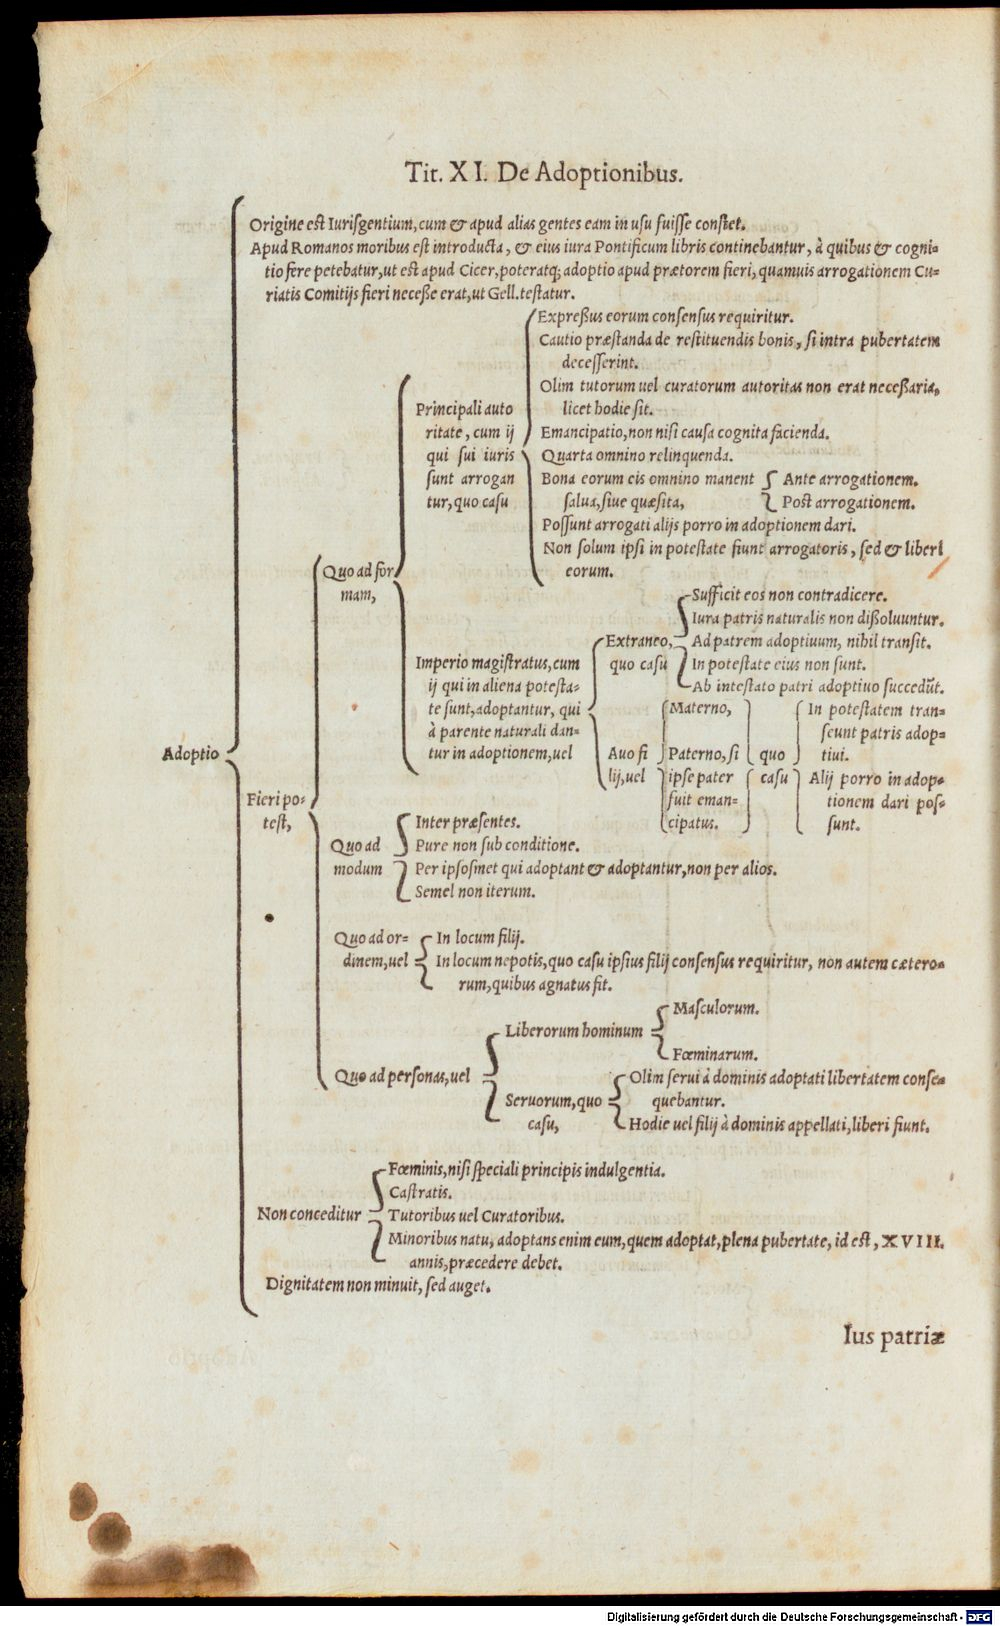 Tit. XI. De Adoptionibus.
Origine est Iurisgentium, cum & apud alias gentes eam in usu fuisse constet.
Apud Romanos moribus est introducta, & eius iura Pontificum libris continebantur, à quibus & cogni=
tio fere petebatur, ut est apud Cicer, poteratq; adoptio apud prætorem fieri, quamuis arrogationem Cu=
riatis Comitijs fieri necesse erat, ut Gell. testatur.
Adoptio
Fieri po=
test,
Quo ad for
mam,
Principali auto
ritate, cum ij
qui sui iuris
sunt arrogan
tur, quo casu
Expressus eorum consensus requiritur.
Cautio præstanda de restituendis bonis, si intra pubertatem
decesserint.
Olim tutorum uel curatorum autoritas non erat necessaria,
licet hodie sit.
Emancipatio, non nisi causa cognita facienda.
Quarta omnino relinquenda.
Bona eorum eis omnino manent
salua, siue quæsita,
Ante arrogationem.
Post arrogationem.
Possunt arrogati alijs porro in adoptionem dari.
Non solum ipsi in potestate fiunt arrogatoris, sed & liberi
eorum.
Imperio magistratus, cum
ij qui in aliena potesta=
te sunt, adoptantur, qui
à parente naturali dan=
tur in adoptionem, uel
Extraneo,
quo casu
Sufficit eos non contradicere.
Iura patris naturalis non dissoluuntur.
Ad patrem adoptiuum, nihil transit.
In potestate eius non sunt.
Ab intestato patri adoptiuo succedūt.
Auo fi
lij, uel
Materno,
Paterno, si
ipse pater
fuit eman=
cipatus.
quo
casu
In potestatem tran=
seunt patris adop=
tiui.
Alij porro in adop=
tionem dari pos=
sunt.
Quo ad
modum
Inter præsentes.
Pure non sub conditione.
Per ipsosmet qui adoptant & adoptantur, non per alios.
Semel non iterum.
Quo ad or=
dinem, uel
In locum filij.
In locum nepotis, quo casu ipsius filij consensus requiritur, non autem cætero=
rum, quibus agnatus fit.
Quo ad personas, uel
Liberorum hominum
Masculorum.
Fœminarum.
Seruorum, quo
casu,
Olim serui à dominis adoptati libertatem conse=
quebantur.
Hodie uel filij à dominis appellati, liberi fiunt.
Non conceditur
Fœminis, nisi speciali principis indulgentia.
Castratis.
Tutoribus uel Curatoribus.
Minoribus natu, adoptans enim eum, quem adoptat, plena pubertate, id est, XVIII.
annis, præcedere debet.
Dignitatem non minuit, sed auget.
Ius patriæ
Digitalisierung gefördert durch die Deutsche Forschungsgemeinschaft - DFG